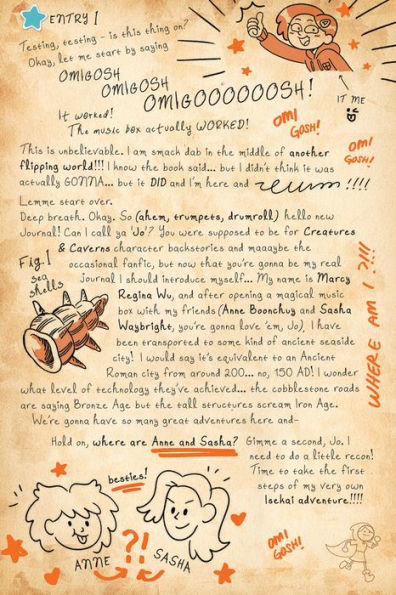 ENTRY 1
Testing, testing - is this thing on?
Okay, let me start by saying
OMIGOSH
OMIGOSH
OMIGOOOOOOSH!
It worked!
The music box actually WORKED!
IT ME
OMI
GOSH!
OMI
GOSH!
This is unbelievable. I am smack dab in the middle of another
flipping world!!! I know the book said... but I didn't think it was
actually GONNA... but it DID and I'm here and !!!!
Lemme start over.
Deep breath. Okay. So (ahem, trumpets, drumroll) hello new
Journal! Can I call ya 'Jo'? You were supposed to be for Creatures
& Caverns character backstories and maaaybe the
occasional fanfic, but now that you're gonna be my real
journal I should introduce myself... My name is Marcy
Regina Wu, and after opening a magical music
box with my friends (Anne Boonchuy and Sasha
Waybright, you're gonna love 'em, Jo), I have
been transported to some kind of ancient seaside
city! I would say it's equivalent to an Ancient
Roman city from around 200... no, 150 AD! I wonder
what level of technology they've achieved... the cobblestone roads
are saying Bronze Age but the tall structures scream Iron Age.
We're gonna have so many great adventures here and-
Fig. 1
sea
shells
WHERE AM I ?!!!
Hold on, where are Anne and Sasha? Gimme a second, Jo. I
need to do a little recon!
Time to take the first
steps of my very own
Isekai adventure!!!!
besties!
?!
!
ANNE
SASHA
OMI
GOSH!